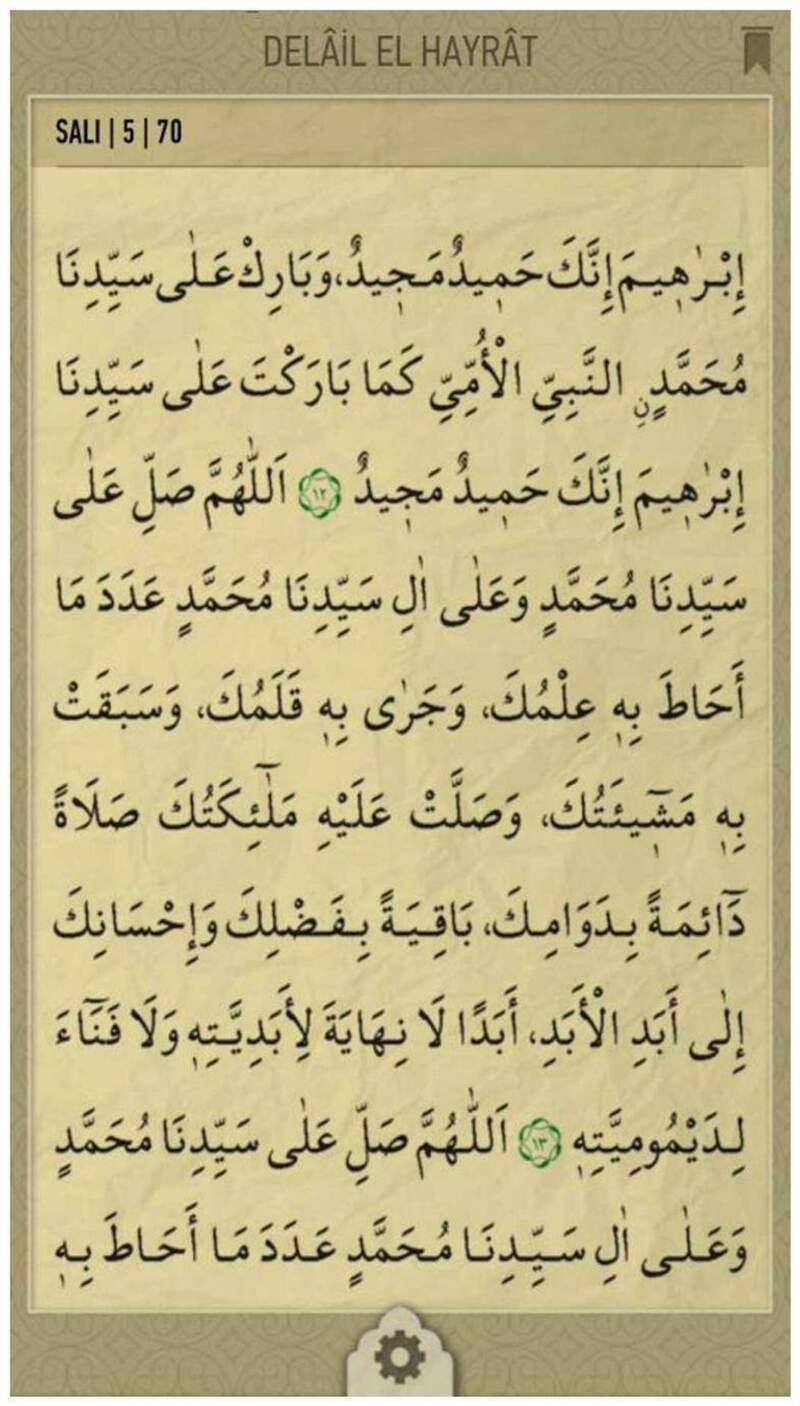 DELÂİL EL HAYRÂT
SALI | 5 | 70
إِبْرٰه۪يمَ إِنَّكَ حَم۪يدٌ مَج۪يدٌ، وَبَارِكْ عَلٰى سَيِّدِنَا
مُحَمَّدٍنِ النَّبِيِّ الْأُمِّيِّ كَمَا بَارَكْتَ عَلٰى سَيِّدِنَا
إِبْرٰه۪يمَ إِنَّكَ حَم۪يدٌ مَج۪يدٌ ١٢ اَللّٰهُمَّ صَلِّ عَلٰى
سَيِّدِنَا مُحَمَّدٍ وَعَلٰى اٰلِ سَيِّدِنَا مُحَمَّدٍ عَدَدَ مَا
أَحَاطَ بِه۪ عِلْمُكَ، وَجَرٰى بِه۪ قَلَمُكَ، وَسَبَقَتْ
بِه۪ مَش۪ٓيئَتُكَ، وَصَلَّتْ عَلَيْهِ مَلٰٓئِكَتُكَ صَلَاةً
دَٓائِمَةً بِدَوَامِكَ، بَاقِيَةً بِفَضْلِكَ وَإِحْسَانِكَ
إِلٰى أَبَدِ الْأَبَدِ، أَبَدًا لَا نِهَايَةَ لِأَبَدِيَّتِه۪ وَلَا فَنَٓاءَ
لِدَيْمُومِيَّتِه۪ ١٣ اَللّٰهُمَّ صَلِّ عَلٰى سَيِّدِنَا مُحَمَّدٍ
وَعَلٰى اٰلِ سَيِّدِنَا مُحَمَّدٍ عَدَدَ مَا أَحَاطَ بِه۪